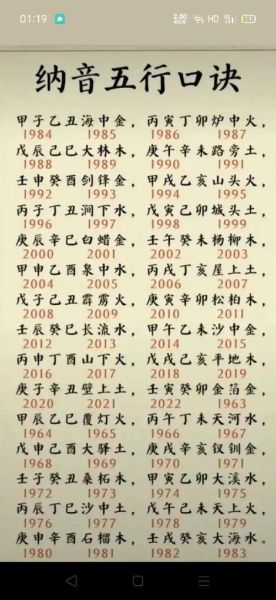 01:19 2.00 KB/S HD 4G
纳音五行口诀
甲子乙丑海中金，丙寅丁卯炉中火，
1984 1985 1986 1987
戊辰己巳大林木，庚午辛未路旁土，
1988 1989 1990 1991
壬申癸酉剑锋金，甲戌乙亥山头火，
1992 1993 1994 1995
丙子丁丑涧下水，戊寅己卯城头土，
1996 1997 1998 1999
庚辰辛巳白蜡金，壬午癸未杨柳木，
2000 2001 2002 2003
甲申乙酉泉中水，丙戌丁亥屋上土，
2004 2005 2006 2007
戊子己丑霹雳火，庚寅辛卯松柏木，
2008 2009 2010 2011
壬辰癸巳长流水，甲午乙未沙中金，
2012 2013 2014 2015
丙申丁酉山下火，戊戌己亥平地木，
2016 2017 2018 2019
庚子辛丑壁上土，壬寅癸卯金箔金，
2020 2021 2022 1963
甲辰乙巳覆灯火，丙午丁未天河水，
1964 1965 1966 1967
戊申己酉大驿土，庚戌辛亥钗钏金，
1968 1969 1970 1971
壬子癸丑桑柘木，甲寅乙卯大溪水，
1972 1973 1974 1975
丙辰丁巳沙中土，戊午己未天上火，
1976 1977 1978 1979
庚申辛酉石榴木，壬戌癸亥大海水。
1980 1981 1982 1983